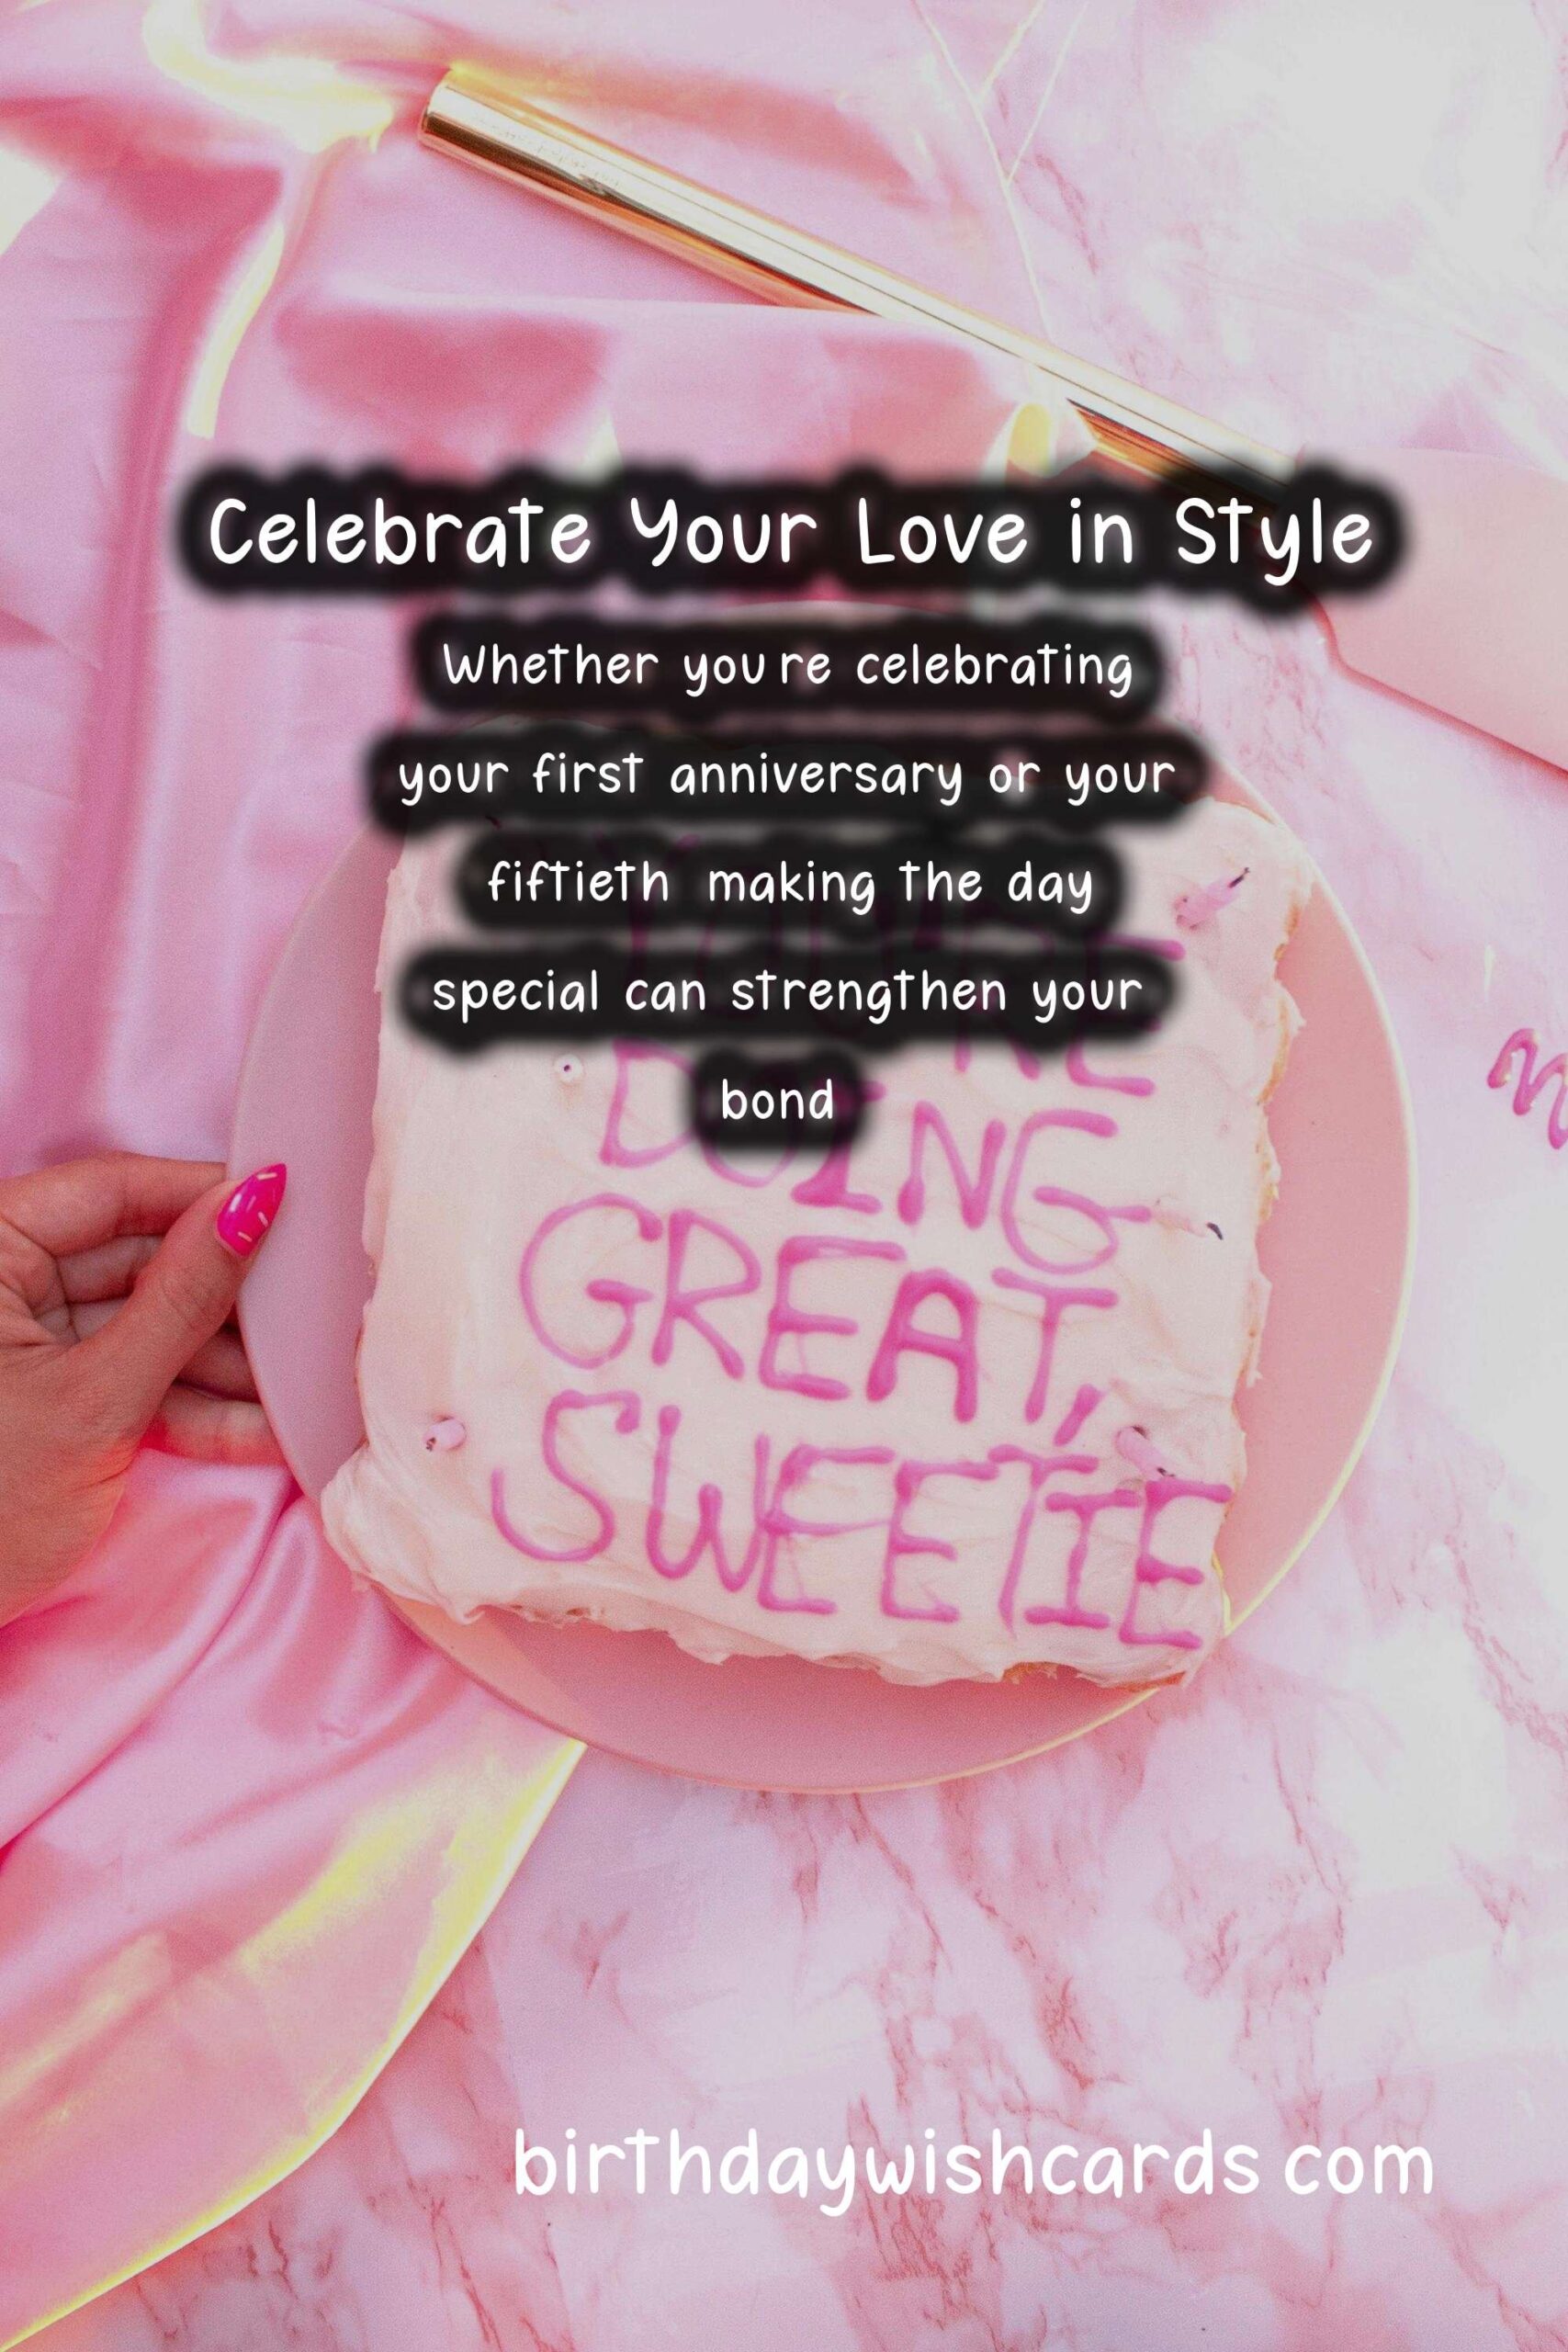 Celebrate Your Love in Style
Whether you re celebrating
your first anniversary or your
fiftieth making the day
special can strengthen your
bond
DOING
GREAT,
SWEETIE
birthdaywishcards com